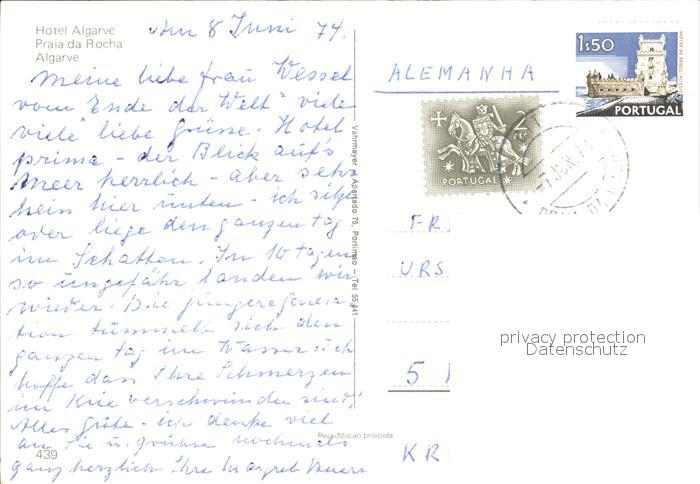 Hotel Algarve
Praia da Rocha
Algarve
8 Juni 74.
Meine liebe Frau Wessel
vom "Ende der Welt" viele
viele liebe Grüsse. Hotel
prima - der Blick auf's
Meer herrlich - aber sehr
heiss hier unten - ich sitze
oder liege den ganzen Tag
im Schatten. In 10 Tagen
so ungefähr landen wir
wieder. Die jüngere Genera-
tion tummelt sich den
ganzen Tag im Wasser. Ich
hoffe dass Ihre Schmerzen
im Knie verschwunden sind!
Alles Gute - ich denke viel
an Sie u. grüsse nochmals
ganz herzlich Ihre Margret
439
Vahrmeyer - Apartado 75, Portimão - Tel 55
Reprodução proibida
ALEMANHA
1$50
PORTUGAL
PORTUGAL
FR
URS
5
KR
privacy protection
Datenschutz